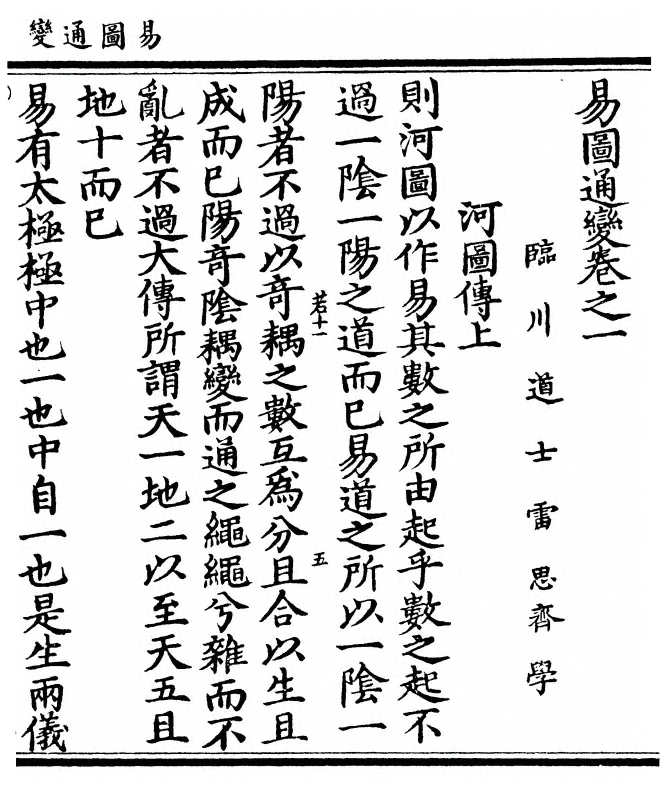 易圖通變
易圖通變卷之一
臨川道士雷思齊學
河圖傳上
則河圖以作易其數之所由起乎數之起不
過一陰一陽之道而已易道之所以一陰一
若十一
五
陽者不過以奇耦之數互為分且合以生且
成而已陽奇陰耦變而通之繩繩兮雜而不
亂者不過大傳所謂天一地二以至天五且
地十而已
易有太極極中也一也中自一也是生兩儀